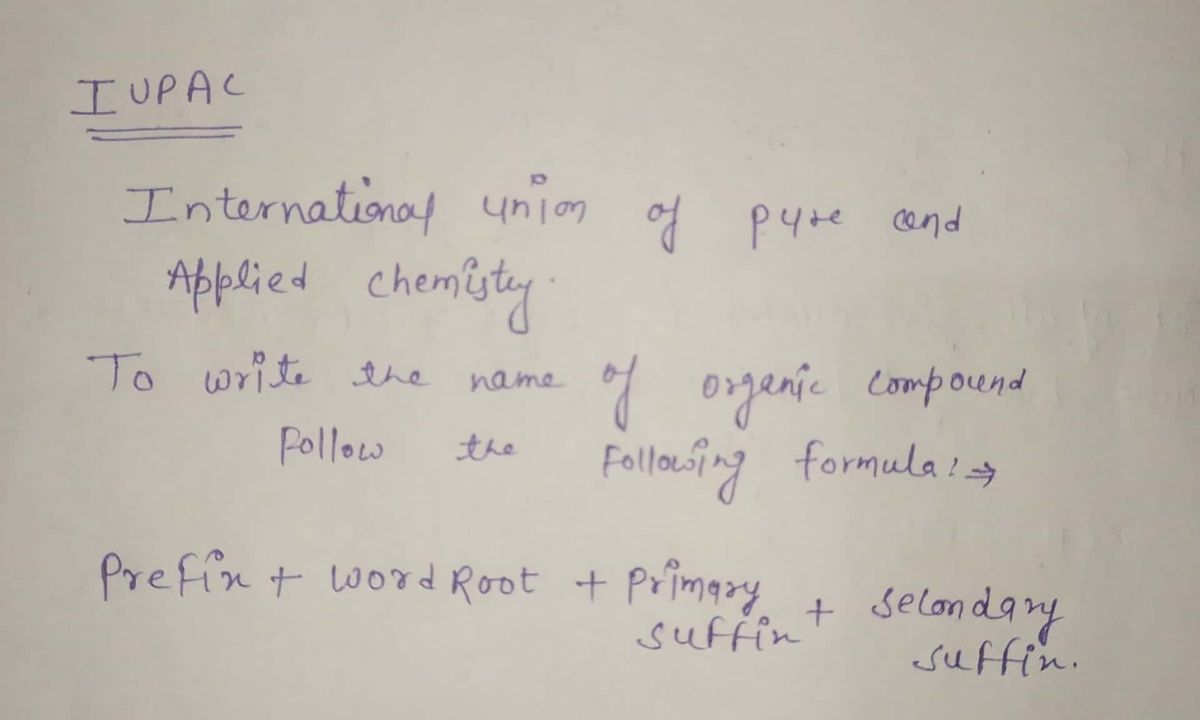 IUPAC
International union of pure and
Applied chemistry.
To write the name of organic compound
follow the following formula:⇒
Prefix + word Root + Primary suffix + secondary suffix.